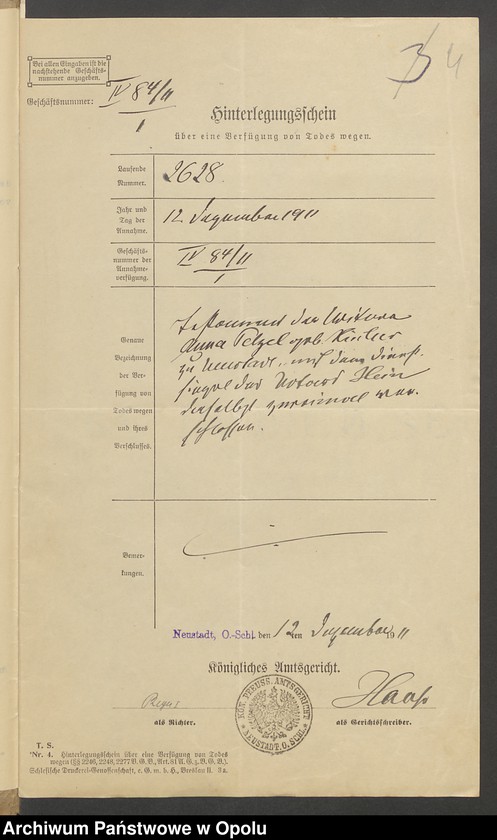 Bei allen Eingaben ist die
nachstehende Geschäfts-
nummer anzugeben.
Geschäftsnummer: IV 84/11
1
4
Hinterlegungsschein
über eine Verfügung von Todes wegen.
Laufende
Nummer.
2628
Jahr und
Tag der
Annahme.
12. Dezember 1911
Geschäfts-
nummer der
Annahme-
verfügung.
IV 84/11
1
Genaue
Bezeichnung
der Ver-
fügung von
Todes wegen
und ihres
Verschlusses.
Testament der Witwe
Anna Petzel geb.
zu Neustadt, mit dem Dienst-
siegel des Notars Hein
daselbst zweimal ver-
schlossen.
Bemer-
kungen.
Neustadt, O.-Schl. den 12ten Dezember 1911
Königliches Amtsgericht.
als Richter.
KÖN. PREUSS. AMTSGERICHT
NEUSTADT, O. SCHL.
als Gerichtsschreiber.
T. S.
Nr. 4. Hinterlegungsschein über eine Verfügung von Todes
wegen (§§ 2246, 2248, 2277 B. G. B., Art. 81 A. G. z. B. G. B.).
Schlesische Druckerei-Genossenschaft, e. G. m. b. H., Breslau II.
Archiwum Państwowe w Opolu